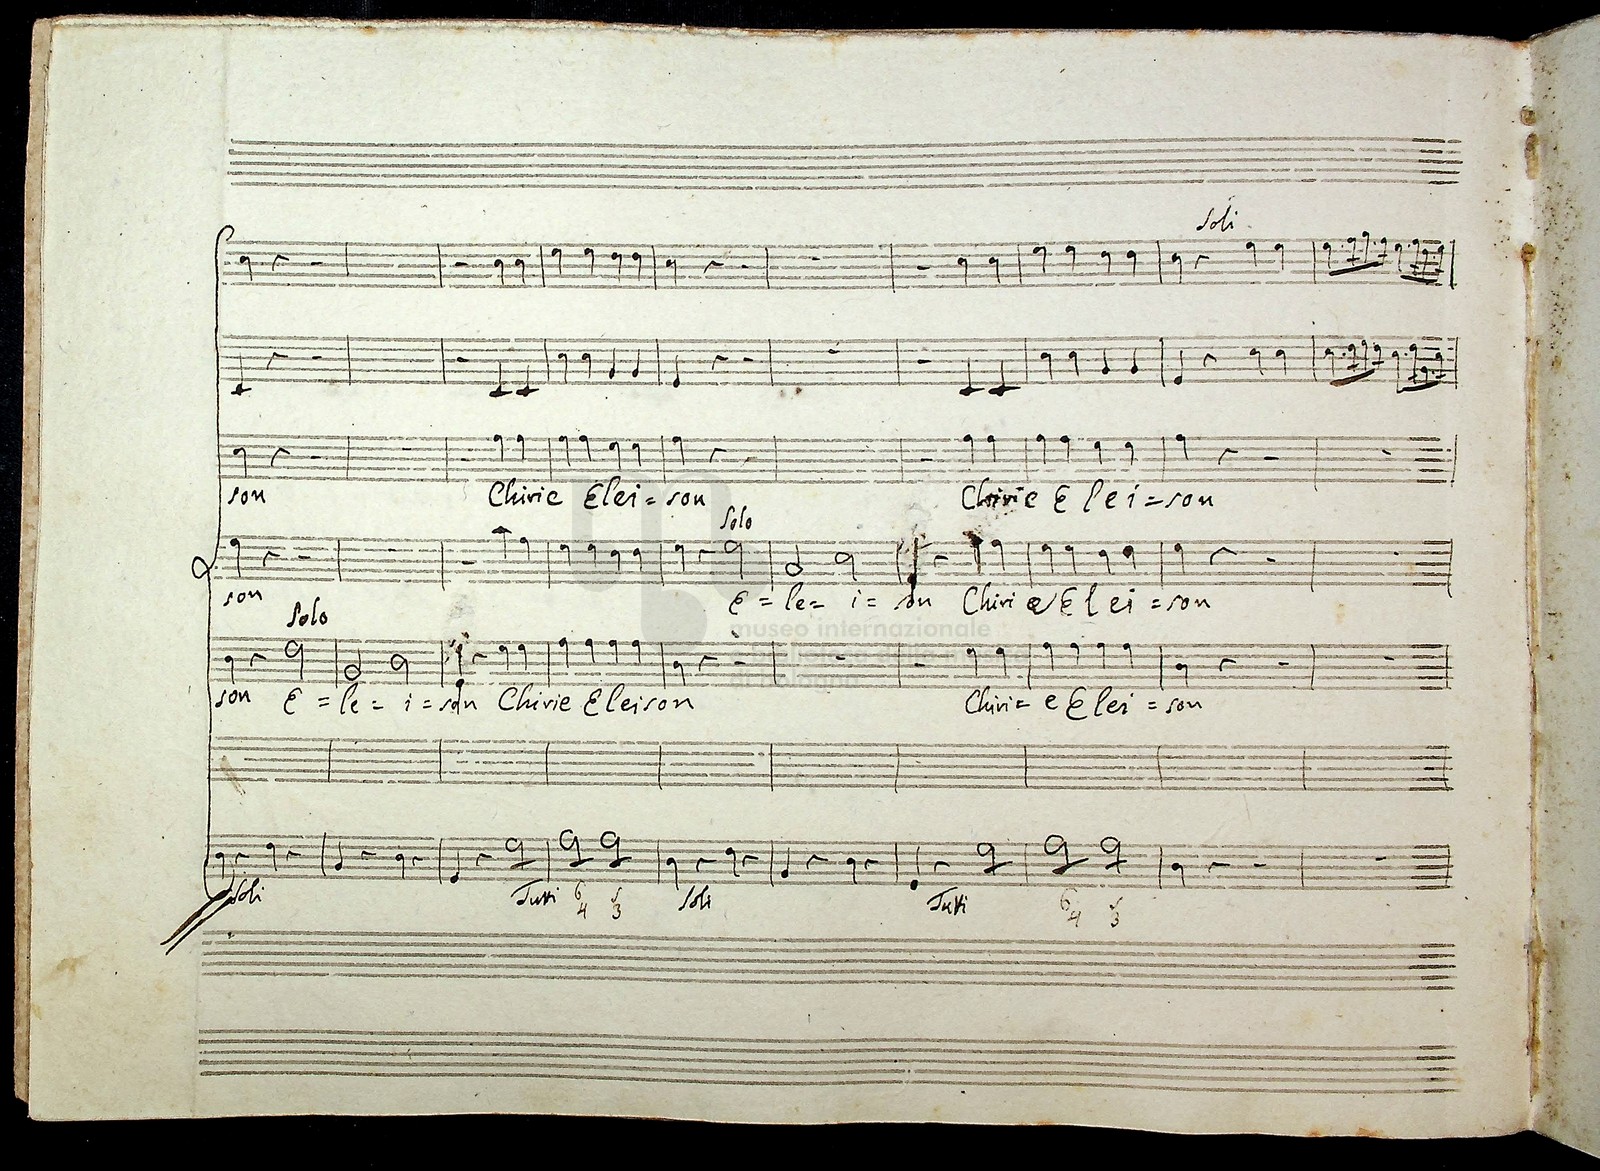 Soli
son Chirie Elei = son Chirie E l e i = son
Solo
son E = le = i = son Chirie E l ei = son
Solo
museo internazionale
son E = le = i = son Chirie Eleison Chiri = e Elei = son
di bologna
Soli Tutti 6 4 5 3 Soli Tutti 6 4 5 3